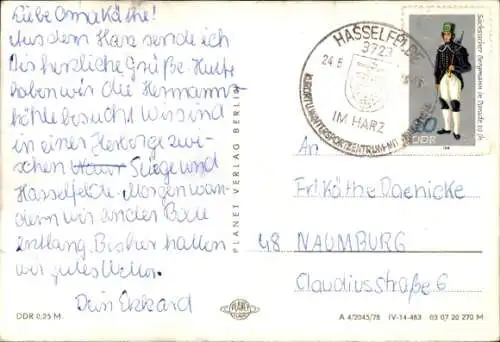 Liebe Oma Käthe!
Aus dem Harz sende ich
Dir herzliche Grüße. Heute
haben wir die Hermanns-
höhle besucht. Wir sind
in einer Herberge zwi-
schen Stiege und
Hasselfelde. Morgen wan-
dern wir an der Bode
entlang. Bisher hatten
wir gutes Wetter.
Dein Ekkard
DDR 0,25 M
PLANET VERLAG BERLIN
PLANET
HASSELFELDE
3723
24.5
IM HARZ
KURORT U. WINTERSPORTZENTRUM
Sächsischer Bergmann in Parade 19. Jh.
DDR
An
Fr. Käthe Daenicke
48 NAUMBURG
Claudiusstraße 6
A 4/2045/78 IV-14-483 03 07 20 270 M